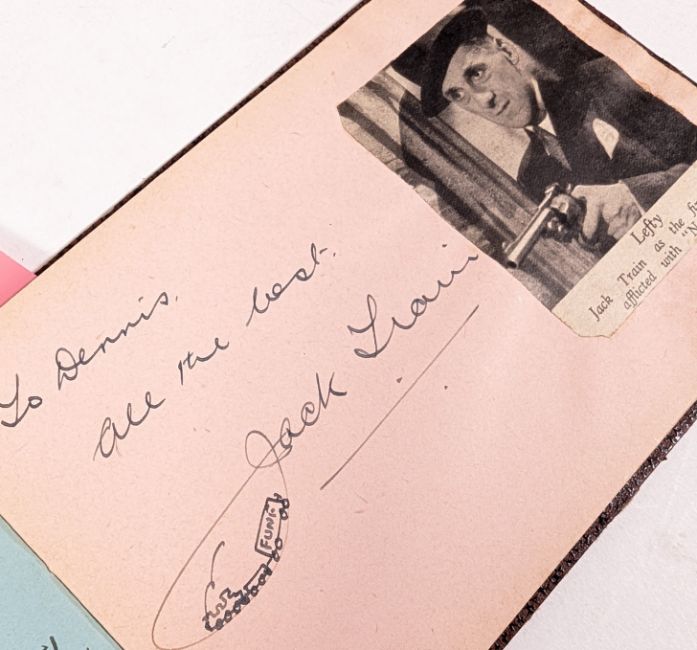 To Dennis.
All the best.
Jack Train
FUNF
Lefty
Jack Train as the
afflicted with